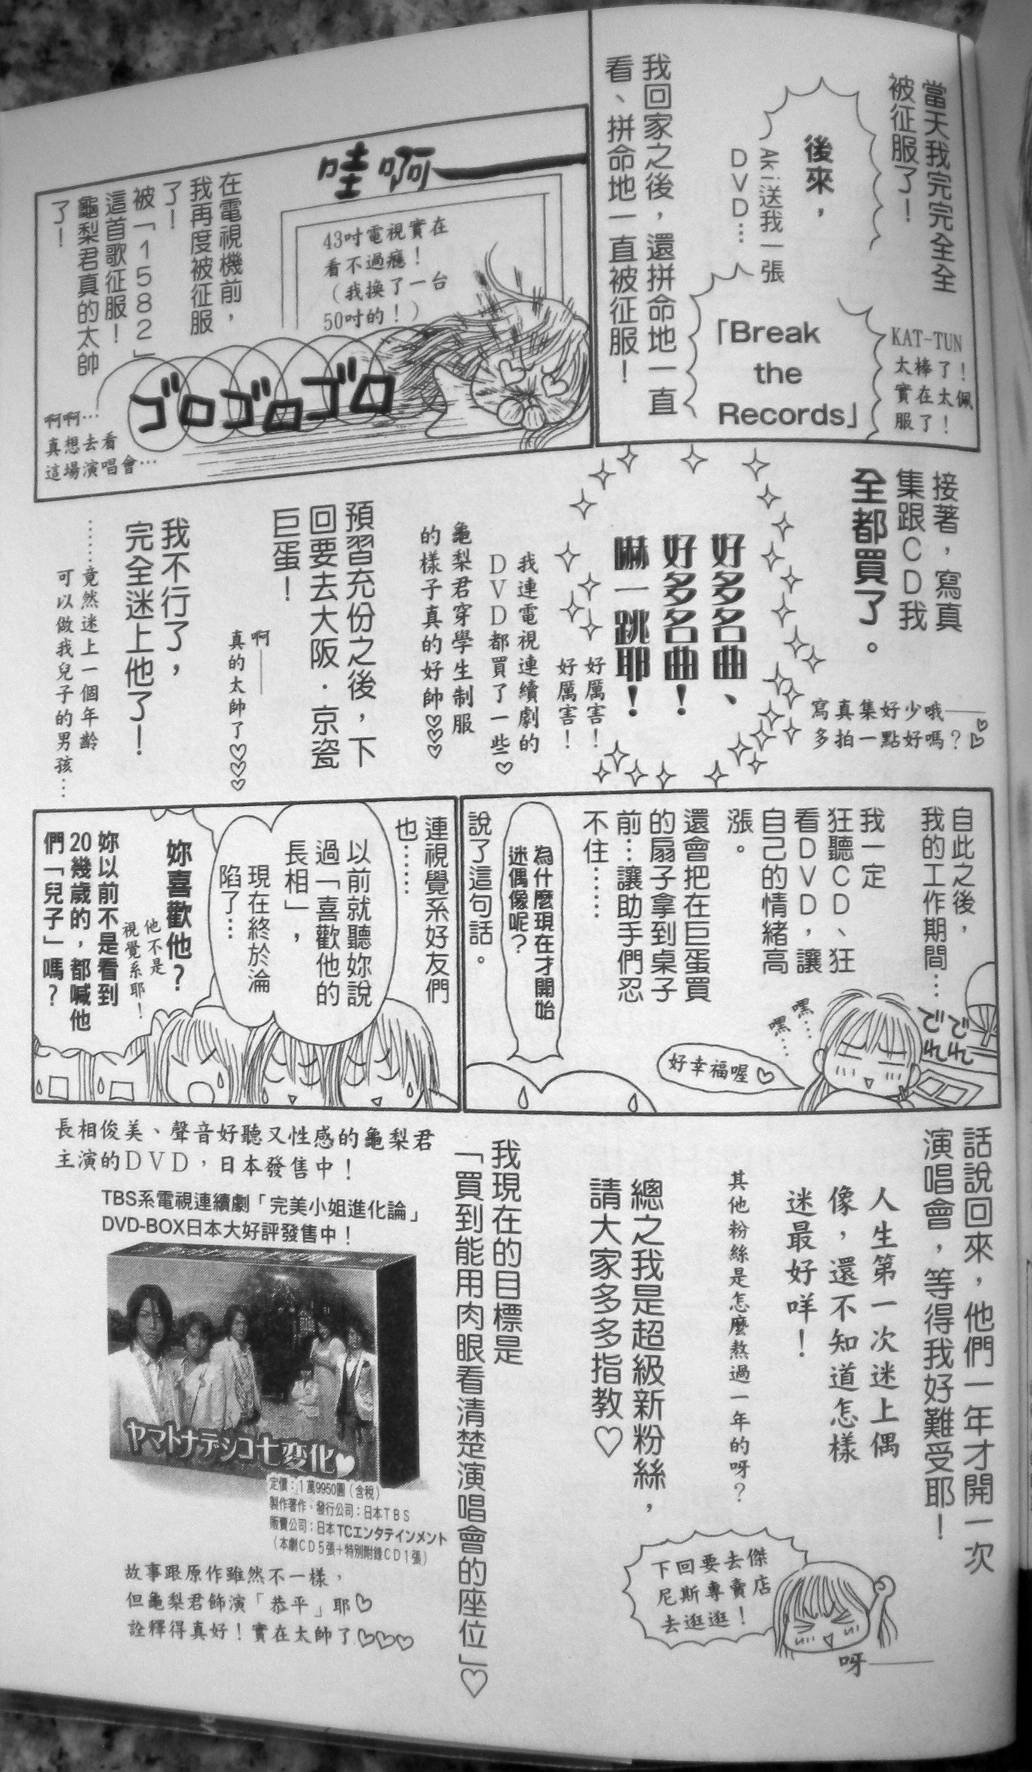 當天我完完全全
被征服了！
後來，
Aki送我一張
DVD…
「Break
the
Records」
KAT-TUN
太棒了！
實在太佩
服了！
我回家之後，還拼命地一直
看、拼命地一直被征服！
哇啊——
43吋電視實在
看不過癮！
（我換了一台
50吋的！）
在電視機前，
我再度被征服
了！
被「1582」
這首歌征服！
龜梨君真的太帥
了！
ゴロゴロゴロ
啊啊…
真想去看
這場演唱會…
接著，寫真
集跟CD我
全都買了。
寫真集好少哦——
多拍一點好嗎？♡
好多名曲、
好多名曲！
嚇一跳耶！
好厲害！
好厲害！
我連電視連續劇的
DVD都買了一些♡
龜梨君穿學生制服
的樣子真的好帥♡♡♡
預習充份之後，下
回要去大阪．京瓷
巨蛋！
啊——
真的太帥了♡♡♡
我不行了，
完全迷上他了！
……竟然迷上一個年齡
可以做我兒子的男孩…
自此之後，
我的工作期間…
我一定
狂聽CD、狂
看DVD，讓
自己的情緒高
漲。
還會把在巨蛋買
的扇子拿到桌子
前…讓助手們忍
不住……
でれ
でれ
嘿…
嘿…
好幸福喔♡
為什麼現在才開始
迷偶像呢？
說了這句話。
連視覺系好友們
也……
以前就聽妳說
過「喜歡他的
長相」，
現在終於淪
陷了…
妳喜歡他？
他不是
視覺系耶！
妳以前不是看到
20幾歲的，都喊他
們「兒子」嗎？
話說回來，他們一年才開一次
演唱會，等得我好難受耶！
人生第一次迷上偶
像，還不知道怎樣
迷最好咩！
其他粉絲是怎麼熬過一年的呀？
總之我是超級新粉絲，
請大家多多指教♡
下回要去傑
尼斯專賣店
去逛逛！
呀——
我現在的目標是
「買到能用肉眼看清楚演唱會的座位」♡
長相俊美、聲音好聽又性感的龜梨君
主演的DVD，日本發售中！
TBS系電視連續劇「完美小姐進化論」
DVD-BOX日本大好評發售中！
ヤマトナデシコ七変化♡
定價：1萬9950圓（含稅）
製作著作．發行公司：日本TBS
販賣公司：日本TCエンタテインメント
（本劇CD5張+特別附錄CD1張）
故事跟原作雖然不一樣，
但龜梨君飾演「恭平」耶♡
詮釋得真好！實在太帥了♡♡♡